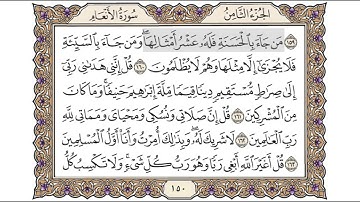 سُورَةُ الأَنْعَامِ
الجُزْءُ الثَّامِنُ
مَن جَاءَ بِالْحَسَنَةِ فَلَهُ عَشْرُ أَمْثَالِهَا وَمَن جَاءَ بِالسَّيِّئَةِ
فَلَا يُجْزَىٰ إِلَّا مِثْلَهَا وَهُمْ لَا يُظْلَمُونَ ١٦٠ قُلْ إِنَّنِي هَدَانِي رَبِّي
إِلَىٰ صِرَاطٍ مُّسْتَقِيمٍ دِينًا قِيَمًا مِّلَّةَ إِبْرَاهِيمَ حَنِيفًا وَمَا كَانَ
مِنَ الْمُشْرِكِينَ ١٦١ قُلْ إِنَّ صَلَاتِي وَنُسُكِي وَمَحْيَايَ وَمَمَاتِي لِلَّهِ
رَبِّ الْعَالَمِينَ ١٦٢ لَا شَرِيكَ لَهُ وَبِذَٰلِكَ أُمِرْتُ وَأَنَا أَوَّلُ الْمُسْلِمِينَ ١٦٣
قُلْ أَغَيْرَ اللَّهِ أَبْغِي رَبًّا وَهُوَ رَبُّ كُلِّ شَيْءٍ وَلَا تَكْسِبُ كُلُّ
١٥٠